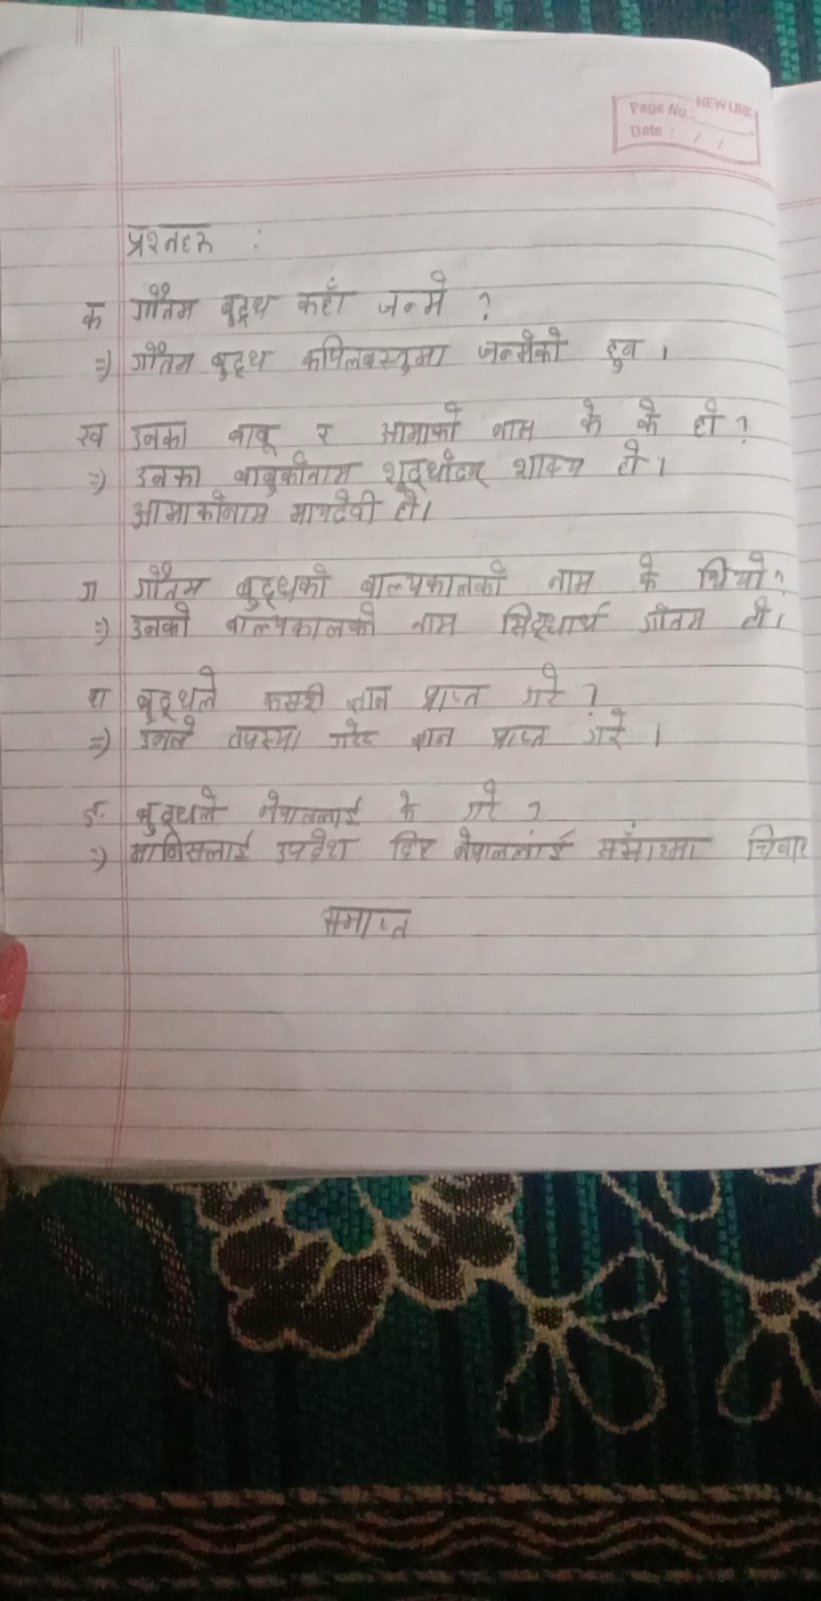 Page No.: NEW LINK
Date : / /
प्रश्नहरू :
क गौतम बुद्ध कहाँ जन्मे ?
=) गौतम बुद्ध कपिलबस्तुमा जन्मेको हुन ।
ख उनका बाबू र आमाको नाम के के हो ?
=) उनका बाबुकोनाम शुद्धोदन शाक्य हो ।
आमाकोनाम मायदेवी हो।
ग गौतम बुद्धको बाल्यकालको नाम के थियो ?
=) उनको बाल्यकालको नाम सिद्धार्थ गौतम हो।
घ बुद्धले कसरी ज्ञान प्राप्त गरे ?
=) उनले तपस्या गरेर ज्ञान प्राप्त गरे ।
ङ बुद्धले नेपाललाई के गरे ?
=) मानिसलाई उपदेश दिए नेपाललाई संसाँरमा चिनाए
समाप्त